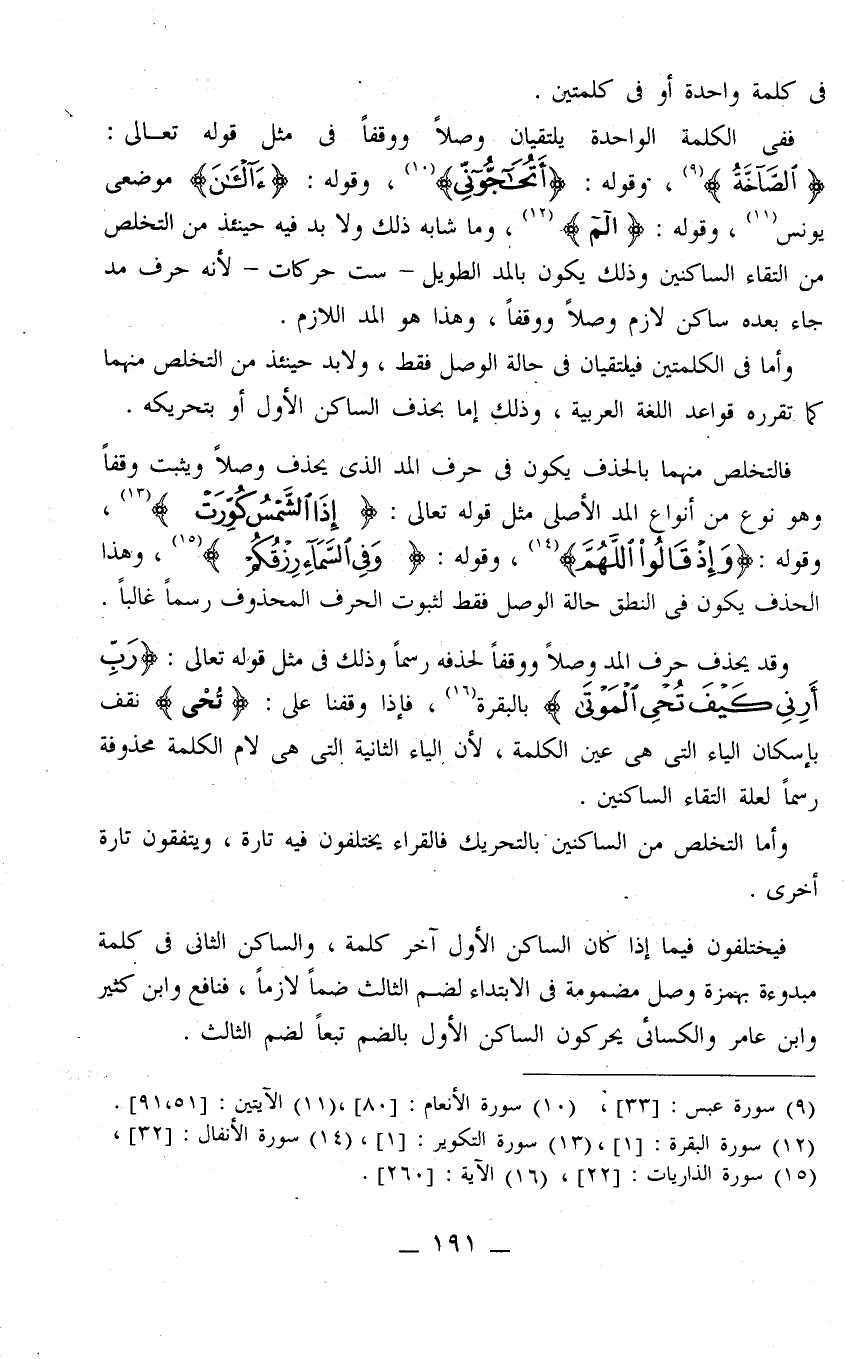 فى كلمة واحدة أو فى كلمتين .
ففى الكلمة الواحدة يلتقيان وصلاً ووقفاً فى مثل قوله تعـالى :
﴿ ٱلصَّآخَّةُ ﴾(٩) ، وقوله : ﴿أَتُحَـٰٓجُّوٓنِّى﴾(١٠) ، وقوله : ﴿ءَآلْـَٔـٰنَ﴾ موضعى
يونس(١١) ، وقوله : ﴿ الٓمٓ ﴾(١٢) ، وما شابه ذلك ولا بد فيه حينئذ من التخلص
من التقاء الساكنين وذلك يكون بالمد الطويل – ست حركات – لأنه حرف مد
جاء بعده ساكن لازم وصلاً ووقفاً ، وهذا هو المد اللازم .
وأما فى الكلمتين فيلتقيان فى حالة الوصل فقط ، ولابد حينئذ من التخلص منهما
كما تقرره قواعد اللغة العربية ، وذلك إما بحذف الساكن الأول أو بتحريكه .
فالتخلص منهما بالحذف يكون فى حرف المد الذى يحذف وصلاً ويثبت وقفاً
وهو نوع من أنواع المد الأصلى مثل قوله تعالى : ﴿ إِذَا ٱلشَّمْسُ كُوِّرَتْ ﴾(١٣) ،
وقوله : ﴿وَإِذْ قَالُوا۟ ٱللَّهُمَّ﴾(١٤) ، وقوله : ﴿ وَفِى ٱلسَّمَآءِ رِزْقُكُمْ ﴾(١٥) ، وهذا
الحذف يكون فى النطق حالة الوصل فقط لثبوت الحرف المحذوف رسماً غالباً .
وقد يحذف حرف المد وصلاً ووقفاً لحذفه رسماً وذلك فى مثل قوله تعالى : ﴿رَبِّ
أَرِنِى كَيْفَ تُحْىِ ٱلْمَوْتَىٰ ﴾ بالبقرة(١٦) ، فإذا وقفنا على : ﴿ تُحْىِ ﴾ نقف
بإسكان الياء التى هى عين الكلمة ، لأن الياء الثانية التى هى لام الكلمة محذوفة
رسماً لعلة التقاء الساكنين .
وأما التخلص من الساكنين بالتحريك فالقراء يختلفون فيه تارة ، ويتفقون تارة
أخرى .
فيختلفون فيما إذا كان الساكن الأول آخر كلمة ، والساكن الثانى فى كلمة
مبدوءة بهمزة وصل مضمومة فى الابتداء لضـم الثالث ضماً لازماً ، فنافع وابن كثير
وابن عامر والكسائى يحركون الساكن الأول بالضم تبعاً لضم الثالث .
(٩) سورة عبس : [٣٣] ، (١٠) سورة الأنعام : [٨٠] ،(١١) الآيتين : [٩١،٥١] .
(١٢) سورة البقرة : [١] ،(١٣) سورة التكوير : [١] ، (١٤) سورة الأنفال : [٣٢] ،
(١٥) سورة الذاريات : [٢٢] ، (١٦) الآية : [٢٦٠] .
_ ١٩١ _